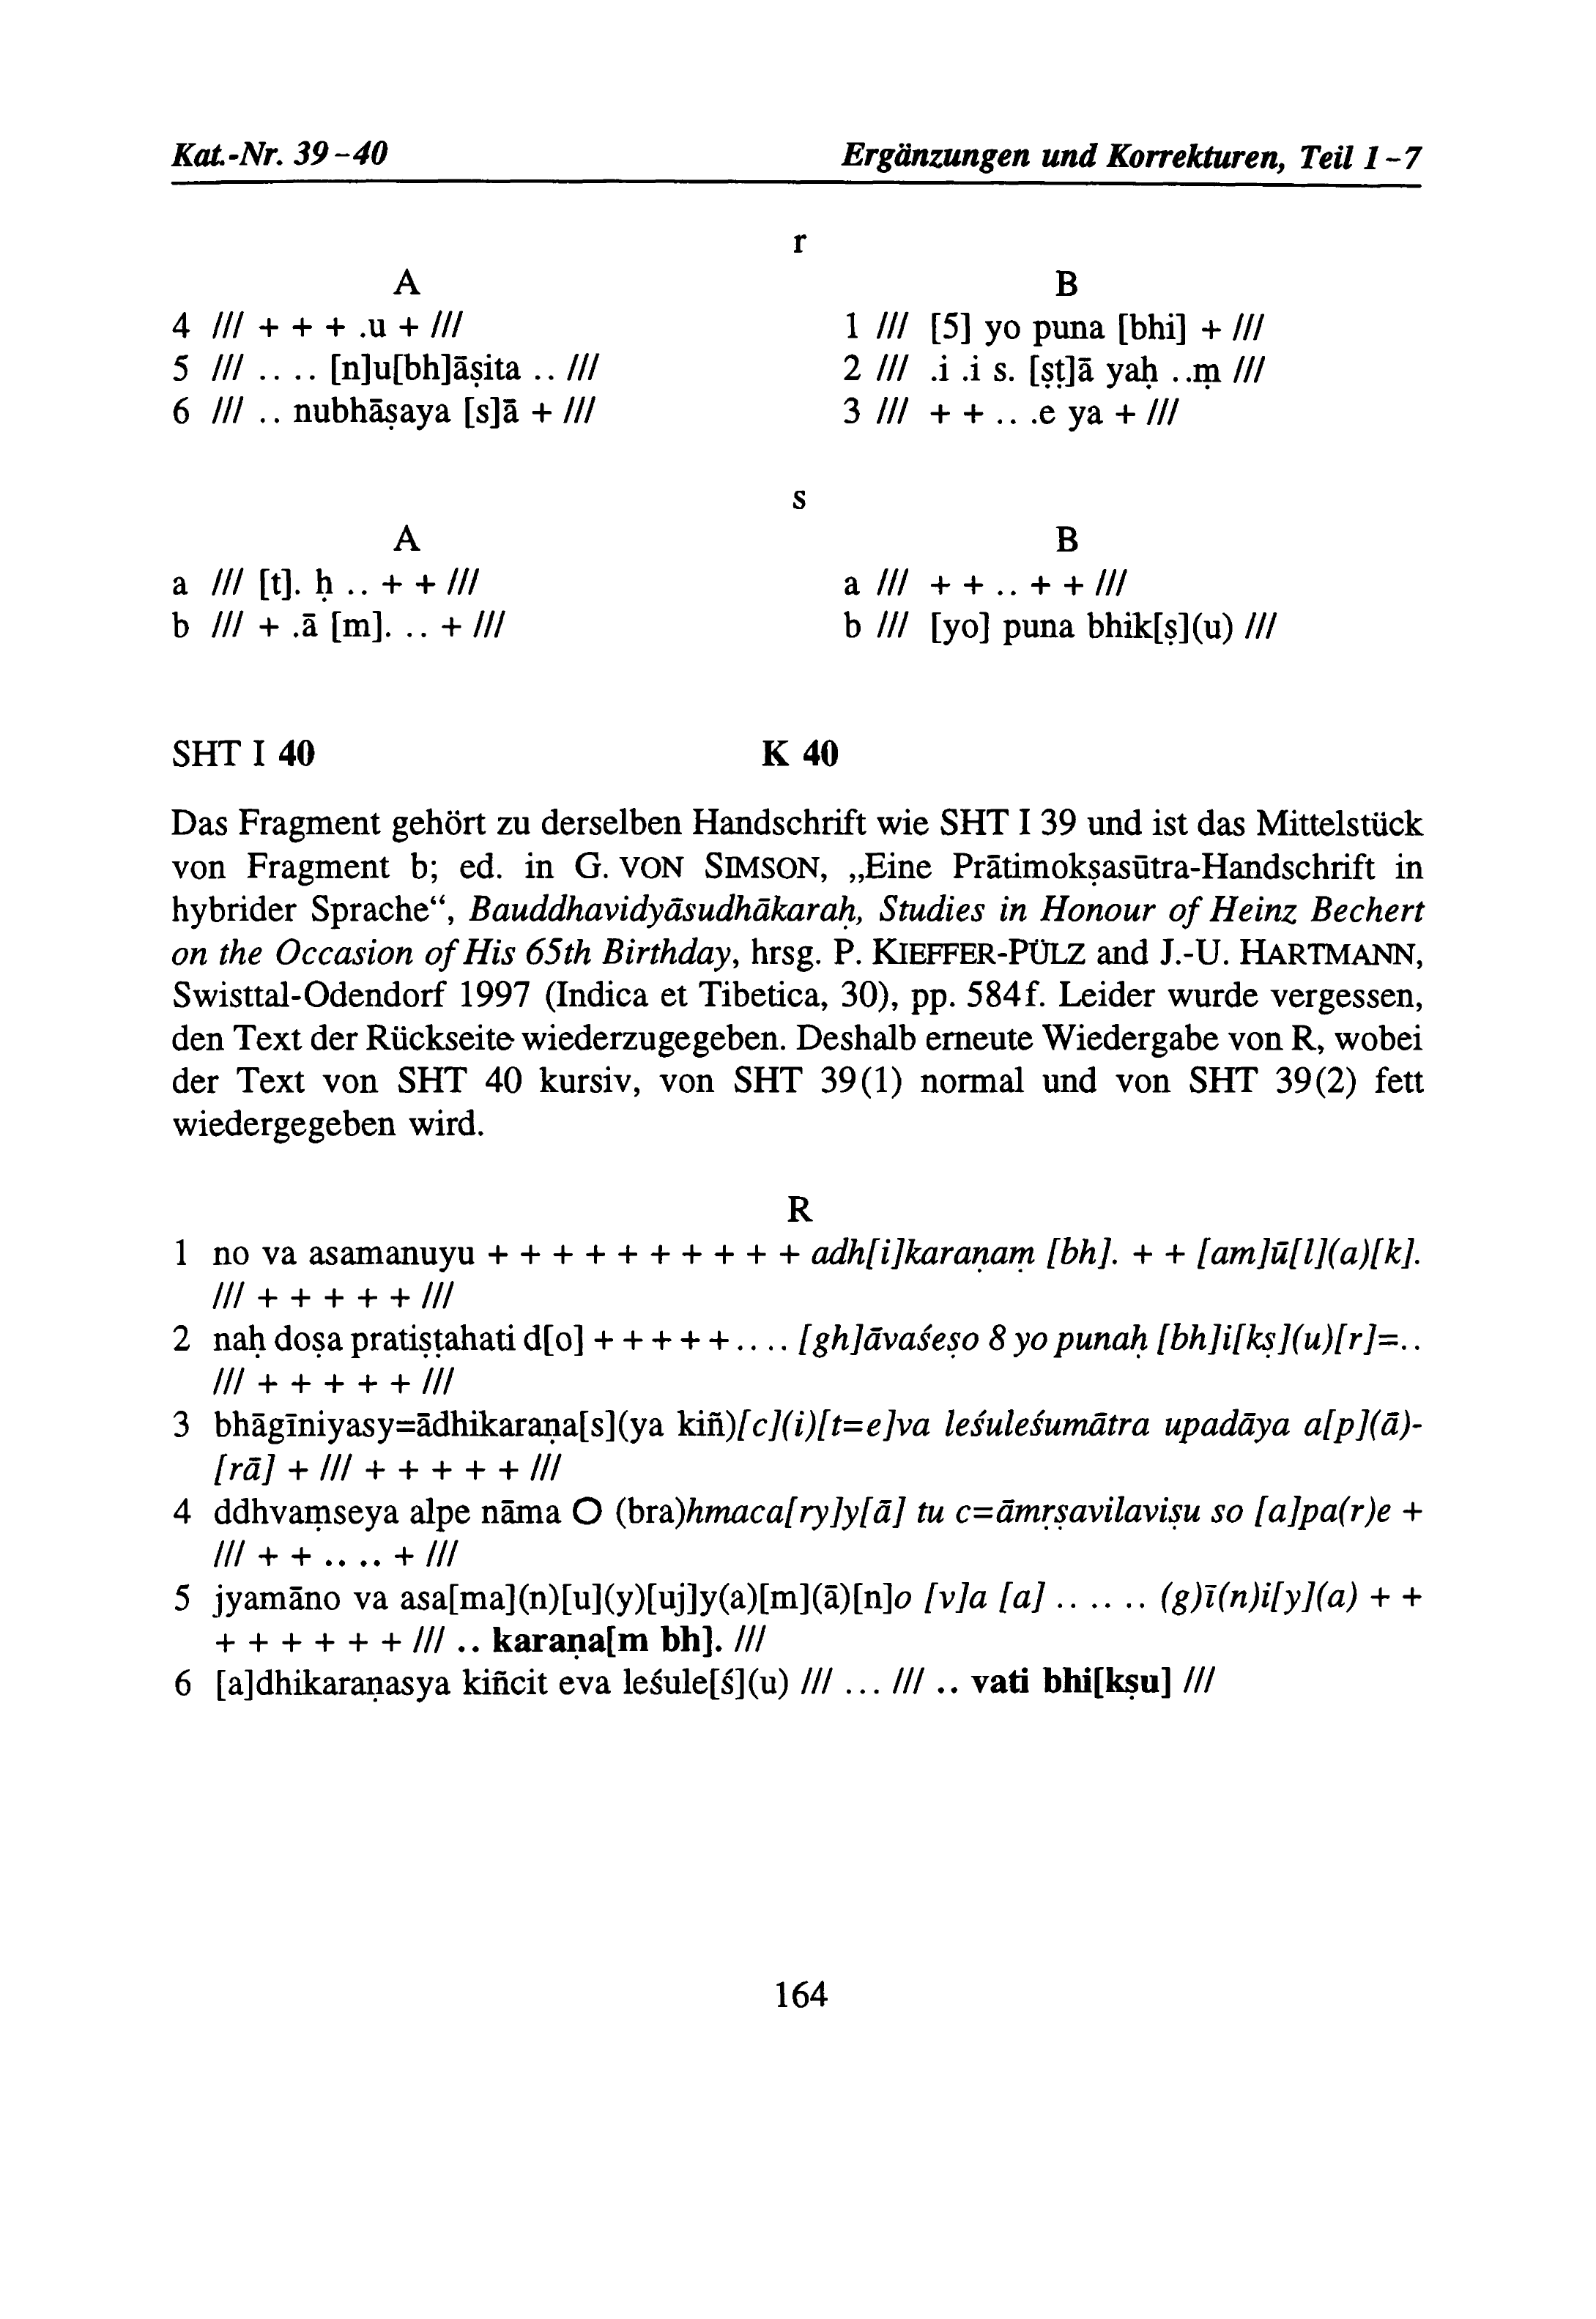 Kat.-Nr. 39-40 Ergänzungen und Korrekturen, Teil 1-7
r
A B
4 /// + + + .u + /// 1 /// [5] yo puna [bhi] + ///
5 /// .. .. [n]u[bh]āṣita .. /// 2 /// .i .i s. [ṣṭ]ā yaḥ ..ṃ ///
6 /// .. nubhāṣaya [s]ā + /// 3 /// + + .. .e ya + ///
s
A B
a /// [t]. ḥ .. + + /// a /// + + .. + + ///
b /// + .ā [m]. .. + /// b /// [yo] puna bhik[ṣ](u) ///
SHT I 40 K 40
Das Fragment gehört zu derselben Handschrift wie SHT I 39 und ist das Mittelstück
von Fragment b; ed. in G. VON SIMSON, „Eine Prātimokṣasūtra-Handschrift in
hybrider Sprache“, Bauddhavidyāsudhākaraḥ, Studies in Honour of Heinz Bechert
on the Occasion of His 65th Birthday, hrsg. P. KIEFFER-PÜLZ and J.-U. HARTMANN,
Swisttal-Odendorf 1997 (Indica et Tibetica, 30), pp. 584f. Leider wurde vergessen,
den Text der Rückseite wiederzugegeben. Deshalb erneute Wiedergabe von R, wobei
der Text von SHT 40 kursiv, von SHT 39(1) normal und von SHT 39(2) fett
wiedergegeben wird.
R
1 no va asamanuyu + + + + + + + + + + adh[i]karaṇaṃ [bh]. + + [am]ū[l](a)[k].
/// + + + + + ///
2 naḥ doṣa pratiṣṭahati d[o] + + + + + .. .. [gh]āvaśeṣo 8 yo punaḥ [bh]i[kṣ](u)[r]=..
/// + + + + + ///
3 bhāgīniyasy=ādhikaraṇa[s](ya kiñ)[c](i)[t=e]va leśuleśumātra upadāya a[p](ā)-
[rā] + /// + + + + + ///
4 ddhvaṃseya alpe nāma O (bra)hmaca[ry]y[ā] tu c=āmṛṣavilaviṣu so [a]pa(r)e +
/// + + .. .. + ///
5 jyamāno va asa[ma](n)[u](y)[uj]y(a)[m](ā)[n]o [v]a [a] .. .. .. (g)ī(n)i[y](a) + +
+ + + + + + /// .. karaṇa[m bh]. ///
6 [a]dhikaraṇasya kiñcit eva leśule[ś](u) /// ... /// .. vati bhi[kṣu] ///
164